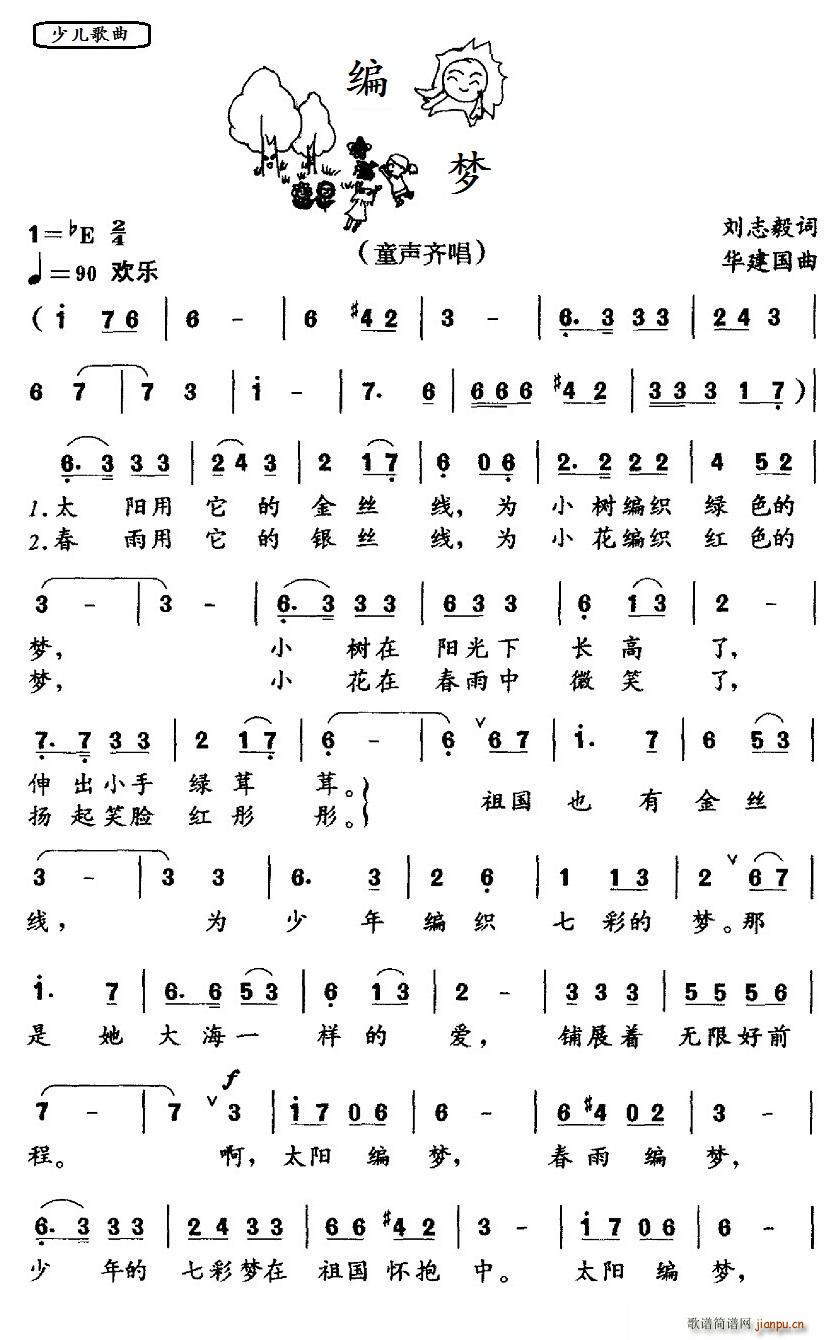 少儿歌曲
编
梦
1=♭E 2/4
刘志毅词
♩=90 欢乐
(童声齐唱)
华建国曲
( i 7 6 | 6 - | 6 #4 2 | 3 - | 6. 3 3 3 | 2 4 3 |
6 7 | 7 3 | i - | 7. 6 | 6 6 6 #4 2 | 3 3 3 1 7 ) |
6. 3 3 3 | 2 4 3 | 2 1 7 | 6 0 6 | 2. 2 2 2 | 4 5 2 |
1.太 阳用 它 的 金 丝 线, 为 小 树编织 绿 色的
2.春 雨用 它 的 银 丝 线, 为 小 花编织 红 色的
3 - | 3 - | 6. 3 3 3 | 6 3 3 | 6 1 3 | 2 - |
梦, 小 树在 阳光下 长 高 了,
梦, 小 花在 春雨中 微 笑 了,
7. 7 3 3 | 2 1 7 | 6 - | 6 ∨ 6 7 | i. 7 | 6 5 3 |
伸 出小手 绿 茸 茸。
扬 起笑脸 红 彤 彤。
祖国 也 有 金 丝
3 - | 3 3 | 6. 3 | 2 6 | 1 1 3 | 2 ∨ 6 7 |
线, 为 少 年 编 织 七 彩的 梦。那
i. 7 | 6. 6 5 3 | 6 1 3 | 2 - | 3 3 3 | 5 5 5 6 |
是 她 大 海一 样 的 爱, 铺展着 无限好前
f
7 - | 7 ∨ 3 | i 7 0 6 | 6 - | 6 #4 0 2 | 3 - |
程。 啊, 太阳 编 梦, 春雨 编 梦,
6. 3 3 3 | 2 4 3 3 | 6 6 #4 2 | 3 - | i 7 0 6 | 6 - |
少 年的 七彩梦在 祖国怀抱 中。 太阳 编 梦,
歌谱简谱网
jianpu.cn